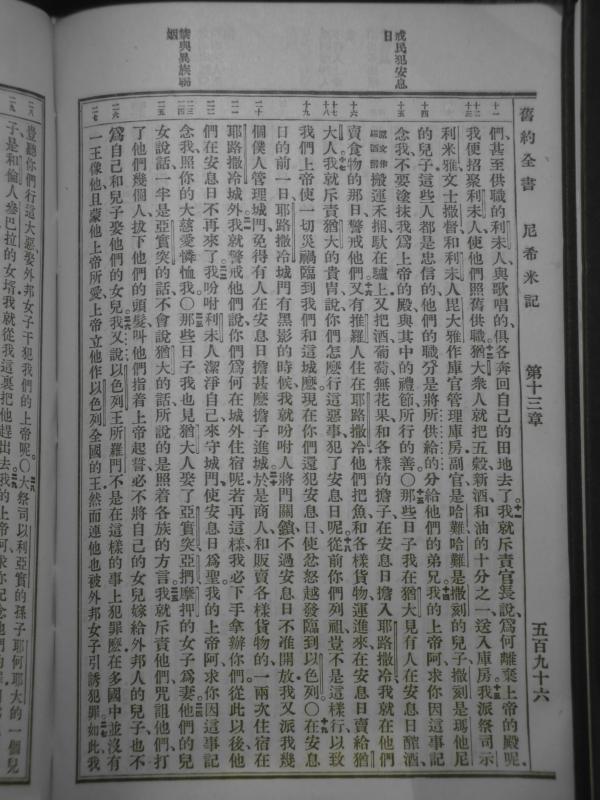 舊約全書 尼希米記 第十三章 五百九十六
戒民犯安息
日
禁與異族聯
姻
們、甚至供職的利未人與歌唱的俱各奔回自己的田地去了。我就斥責官長說、爲何離棄上帝的殿呢。
我便招聚利未人、使他們照舊供職。猶大衆人就把五穀新酒和油的十分之一、送入庫房。我派祭司示
利米雅、文士撒督、和利未人毘大雅、作庫官管理庫房、副官是哈難、哈難是撒刻的兒子、撒刻是瑪他尼
的兒子、這些人都是忠信的、他們的職分是將所供給的分給他們的弟兄。我的上帝阿、求你因這事記
念我、不要塗抹我爲上帝的殿、與其中的禮節所行的善。○那些日子、我在猶大見有人在安息日醡酒、
搬運禾捆馱在驢上、又把酒、葡萄、無花果、和各樣的擔子、在安息日擔入耶路撒冷、我就在他們
賣食物的那日警戒他們。又有推羅人住在耶路撒冷、他們把魚和各樣貨物運進來、在安息日賣給猶
大人。我就斥責猶大的貴冑說、你們怎麽行這惡事、犯了安息日呢。從前你們列祖豈不是這樣行、以致
我們上帝使一切災禍臨到我們和這城麽、現在你們還犯安息日、使忿怒越發臨到以色列。○在安息
日的前一日、耶路撒冷城門有黑影的時候、我就吩咐人將門關鎖、不過安息日不准開放、我又派我幾
個僕人管理城門、免得有人在安息日擔甚麽擔子進城。於是商人和販賣各樣貨物的、一兩次住宿在
耶路撒冷城外。我就警戒他們說、你們爲何在城外住宿呢、若再這樣、我必下手拿辦你們。從此以後他
們在安息日不再來了。我吩咐利未人潔淨自己、來守城門、使安息日爲聖。我的上帝阿、求你因這事記
念我、照你的大慈愛憐恤我。○那些日子、我也見猶大人娶了亞實突亞捫摩押的女子爲妻。他們的兒
女說話、一半是亞實突的話、不會說猶大的話、所說的是照着各族的方言。我就斥責他們、咒詛他們、打
了他們幾個人、拔下他們的頭髮、叫他們指着上帝起誓、必不將自己的女兒嫁給外邦人的兒子、也不
爲自己和兒子娶他們的女兒。我又說、以色列王所羅門不是在這樣的事上犯罪麽、在多國中並沒有
一王像他、且蒙他上帝所愛、上帝立他作以色列全國的王、然而連他也被外邦女子引誘犯罪。如此我
豈聽你們行這大惡、娶外邦女子、干犯我們的上帝呢。○大祭司以利亞實的孫子、耶何耶大的一個兒
子、是和倫人參巴拉的女壻、我就從我這裏把他趕出去。我的上帝阿、求你記念他們的